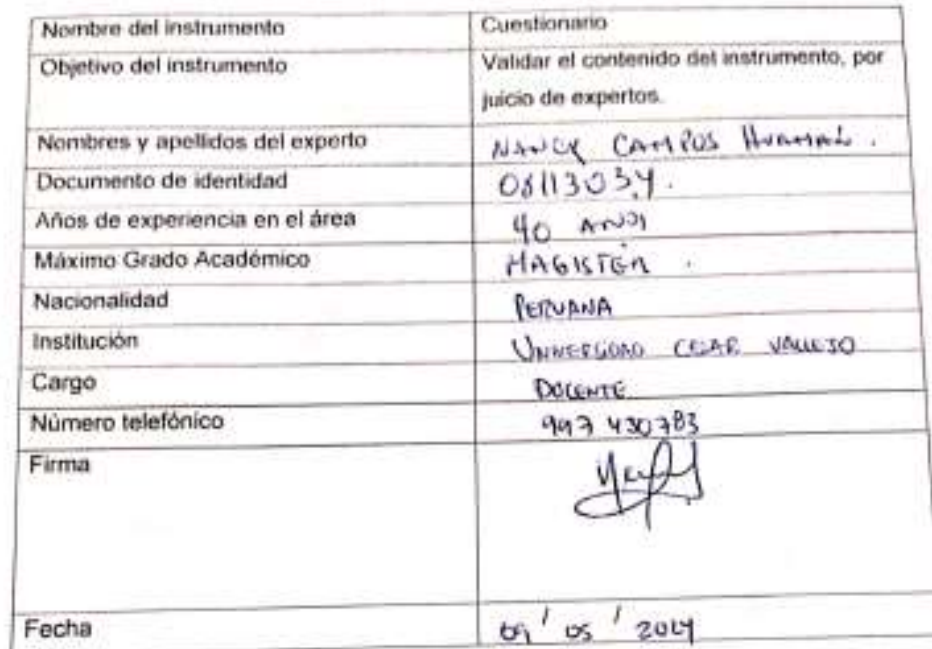 Nombre del instrumento Cuestionario
Objetivo del instrumento Validar el contenido del instrumento, por
juicio de expertos.
Nombres y apellidos del experto NANCY CAMPOS HUAMAN.
Documento de identidad 08113034.
Años de experiencia en el área 40 AÑOS
Máximo Grado Académico MAGISTER.
Nacionalidad PERUANA
Institución UNIVERSIDAD CESAR VALLEJO
Cargo DOCENTE
Número telefónico 997 430783
Firma
Fecha 09/05/2024